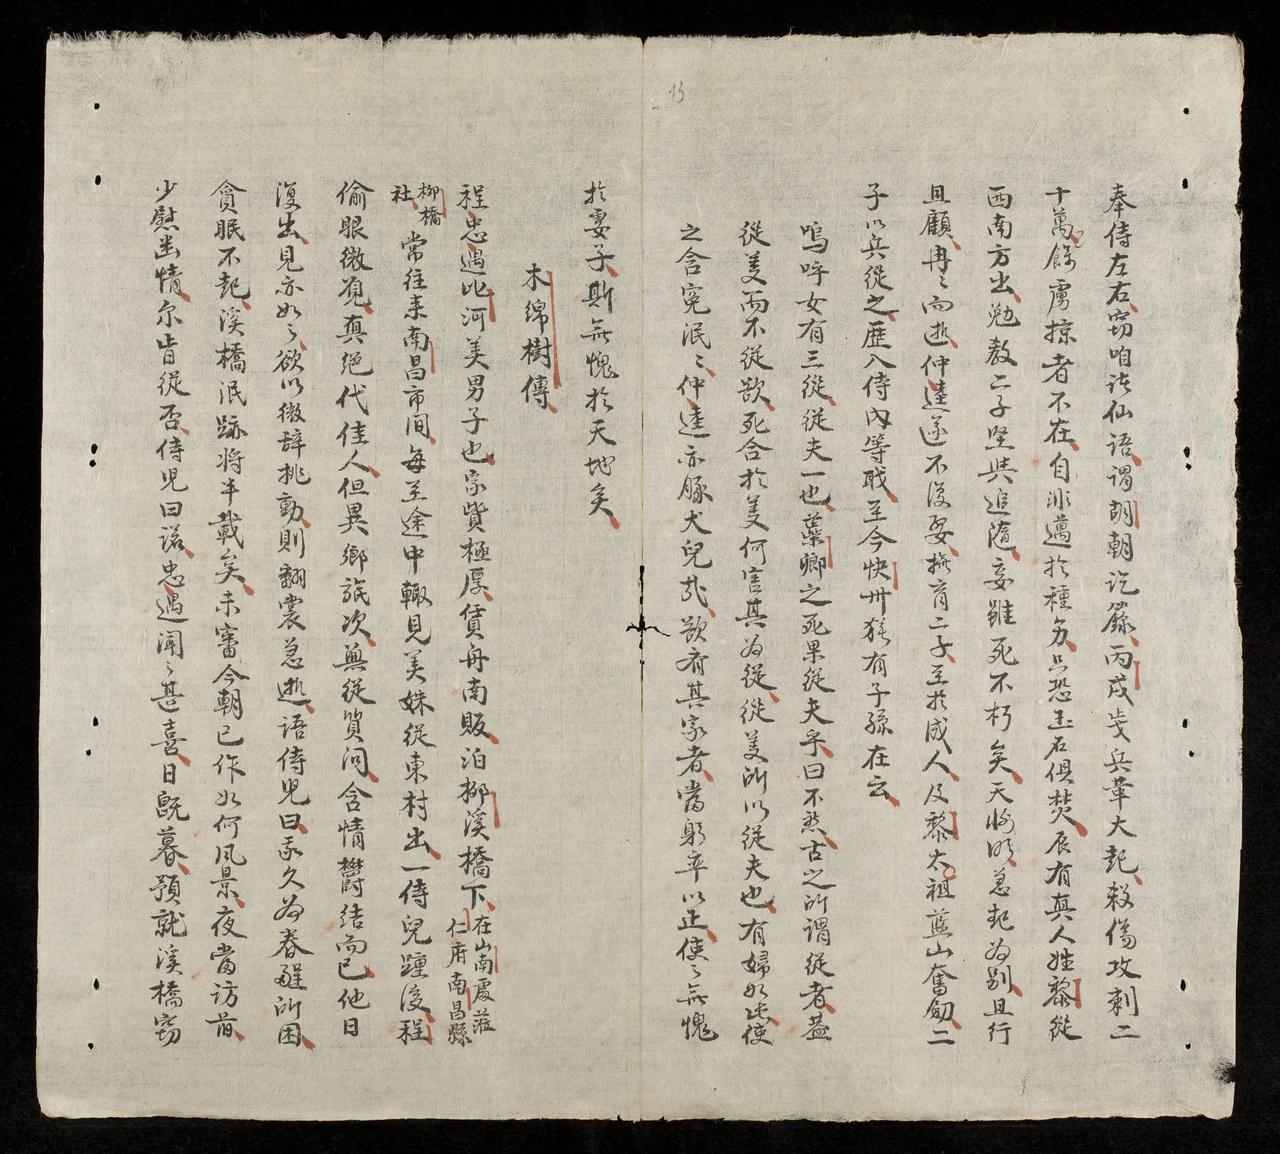 15
奉侍左右窃咱諸仙語謂胡朝訖籙丙戌歲兵革大起殺傷攻刺二
十萬餘虜掠者不在自非邁於種勿只恐玉石俱焚辰有真人姓黎從
西南方出勉教二子堅與追隨妾雖死不朽矣天將明急起為別且行
且顧冉〻而逝仲逵遂不復娶撫育二子至於成人及黎太祖藍山奮劍二
子以兵從之歷入侍內等職至今快州猶有子孫在云
嗚呼女有三從從夫一也蘂卿之死果從夫乎曰不然古之所謂從者蓋
從美而不從欲死合於美何害其為從從美所以從夫也有婦如此使
之含冤泯〻仲逵亦豚犬兒哉欲齊其家者當躬率以正使〻無愧
於妻子斯無愧於天地矣
木綿樹傳
程忠遇北河美男子也家貲極厚賃舟南販泊柳溪橋下在山南處蒞仁府南昌縣
柳橋社常往來南昌市間每至途中輒見美姝從東村出一侍兒踵後程
偷眼微覓真絕代佳人但異鄉旅次無從質问含情欝结而已他日
復出見亦如〻欲以微辞挑動則翻裳急逝語侍兒曰我久為春酲所困
貪眠不起溪橋泯跡将半載矣未審今朝已作如何风景夜當访前
少慰幽情尔肯從否侍兒曰諾忠遇闻〻甚喜日既暮預就溪橋窃